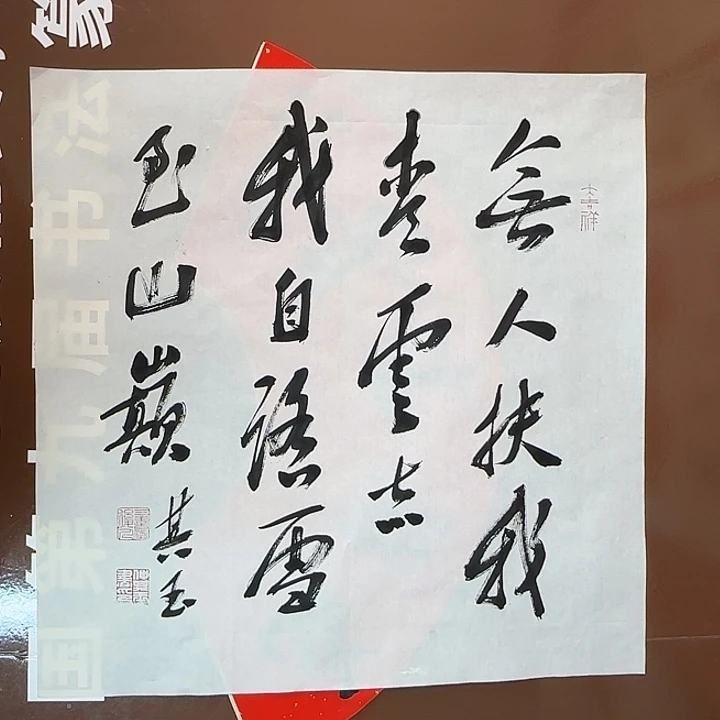 無人扶我
青雲志
我自踏雪
至山巔
其玉
大吉祥
国第九届书法篆